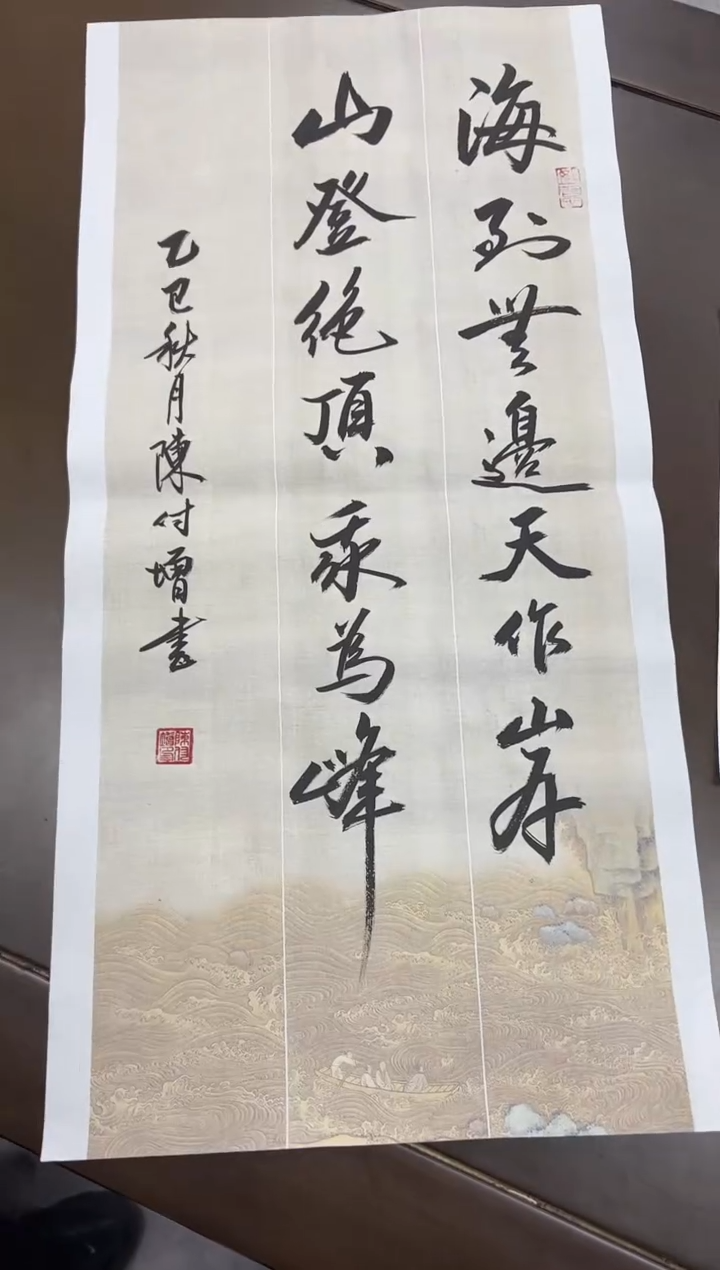 海到無邊天作岸
山登絶頂我為峰
乙巳秋月陳付增書